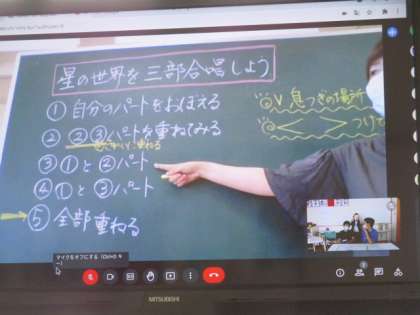 星の世界を三部合唱しよう
① 自分のパートをおぼえる
② ②③パートを重ねてみる
③ ①と②パート
④ ①と③パート
⑤ 全部重ねる
V 息つぎの場所
＜＞つけて
マイクをオフにする
MITSUBISHI